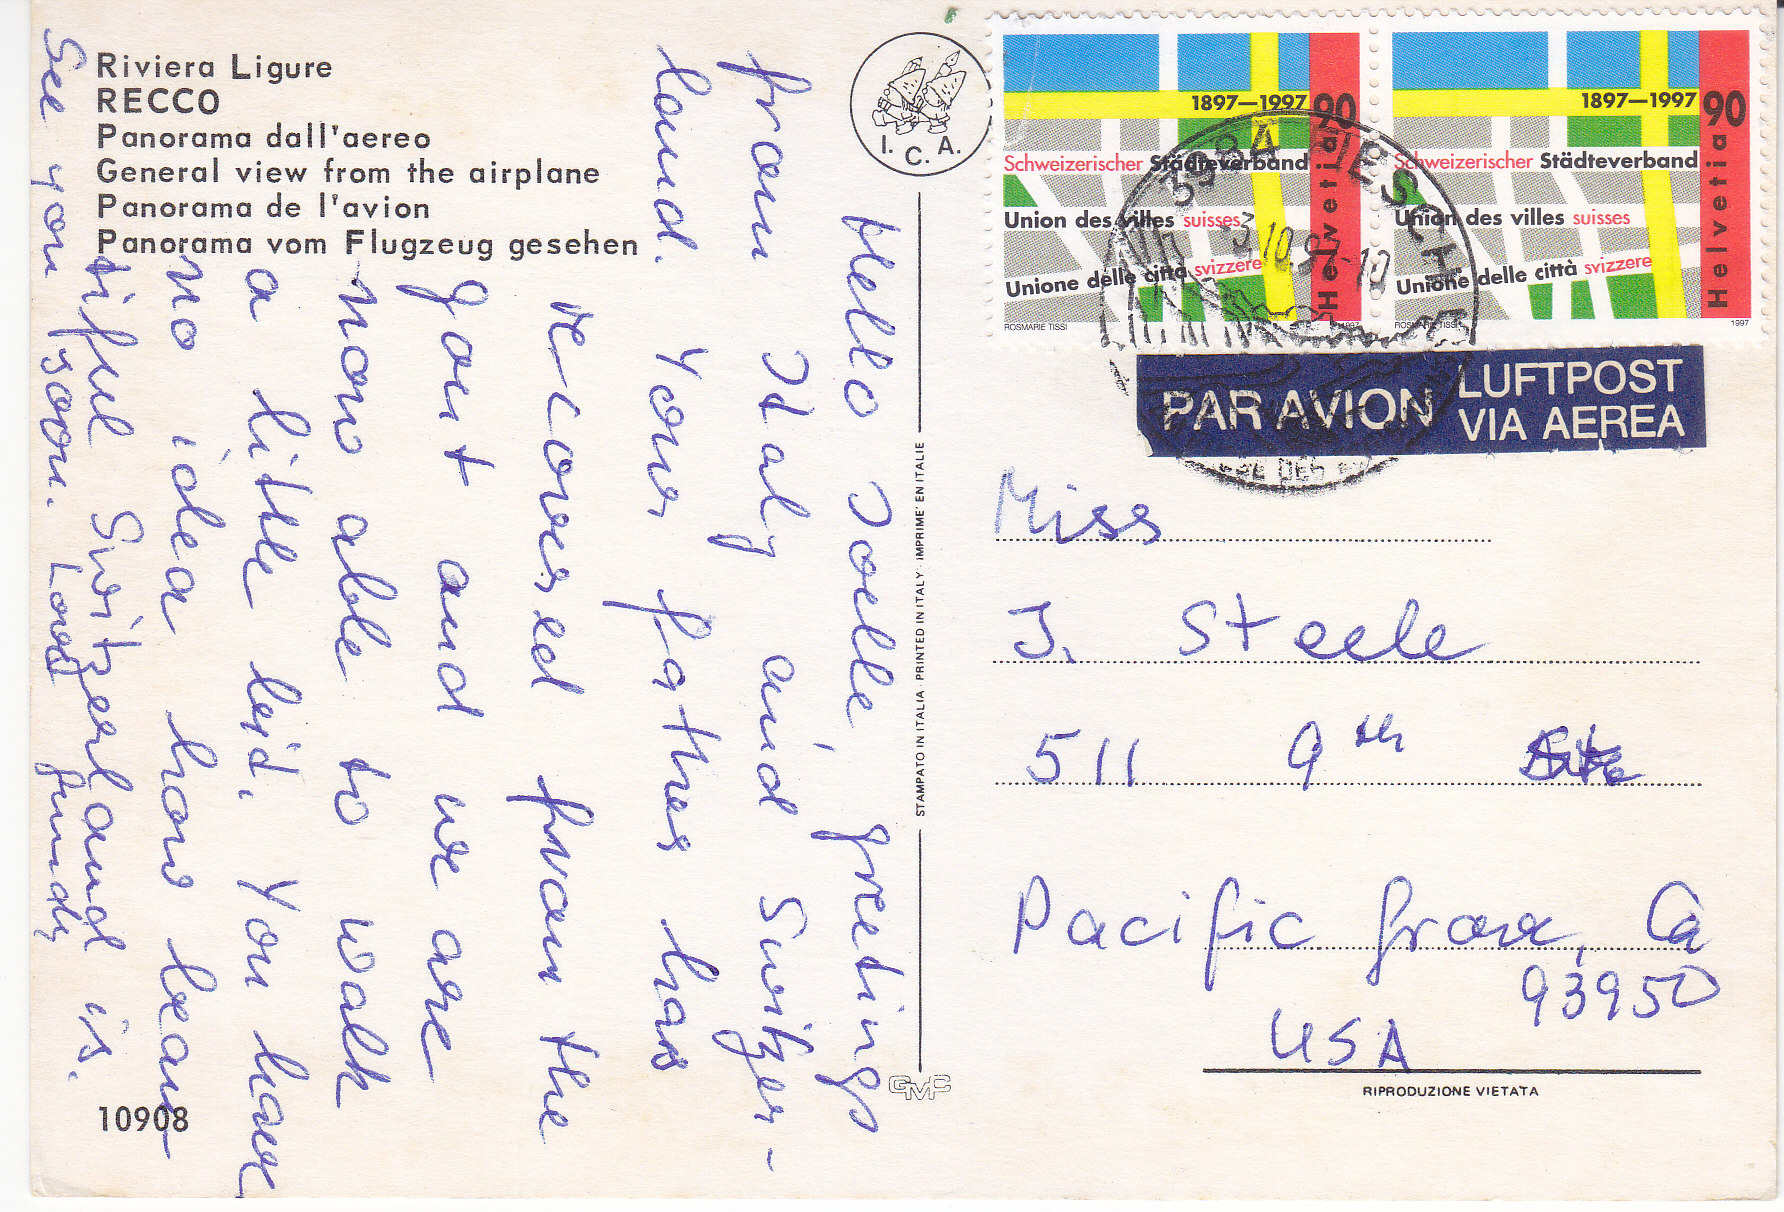 Riviera Ligure
RECCO
Panorama dall'aereo
General view from the airplane
Panorama de l'avion
Panorama vom Flugzeug gesehen
I. C. A.
Hello Joelle, greetings
from Italy and Switzer-
land. Your father has
recovered from the
gout and we are
now able to walk
a little bit. You have
no idea how beau-
tiful Switzerland is.
See you soon. Love Jundy
10908
STAMPATO IN ITALIA · PRINTED IN ITALY · IMPRIMÉ EN ITALIE
GMC
1897—1997 90
Schweizerischer Städteverband
Union des villes suisses
Unione delle città svizzere
Helvetia
ROSMARIE TISSI 1997
1897—1997 90
Schweizerischer Städteverband
Union des villes suisses
Unione delle città svizzere
Helvetia
ROSMARIE TISSI 1997
3984 FIESCH
PAR AVION LUFTPOST
VIA AEREA
Miss
J. Steele
511 9th
Pacific Grove, Ca
93950
USA
RIPRODUZIONE VIETATA